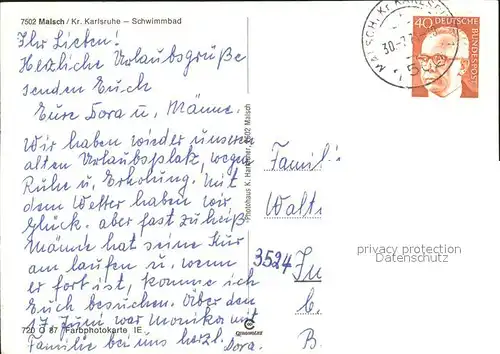 7502 Malsch / Kr. Karlsruhe – Schwimmbad
Ihr Lieben!
Herzliche Urlaubsgrüße
senden Euch
Eure Dora u. Männe.
Wir haben wieder unseren
alten Urlaubsplatz, wegen
Ruhe u. Erholung. Mit
dem Wetter haben wir
Glück. aber fast zu heiß
Männe hat seine Kur
am laufen u. wenn
er fort ist, komme ich
Euch besuchen. Über den
17. Juni war Monika mit
Familie bei uns herzl. Dora.
720 G 87 / Farbphotokarte IE
Photohaus K. 7502 Malsch
MALSCH, Kr KARLSRUHE
30.-7.
40 DEUTSCHE BUNDESPOST
Famil
Walt
3524
b.
B.
privacy protection
Datenschutz